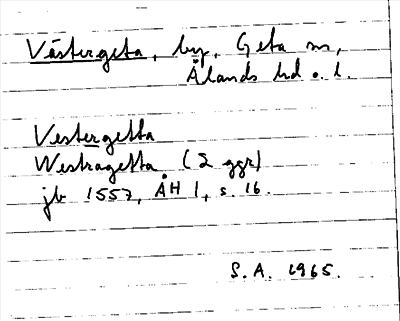 Västergeta, by, Geta sn,
Ålands hd o. l.
Vestergetta
Westragetta (2 ggr)
jb 1557, ÅH 1, s. 16.
S. A. 1965.